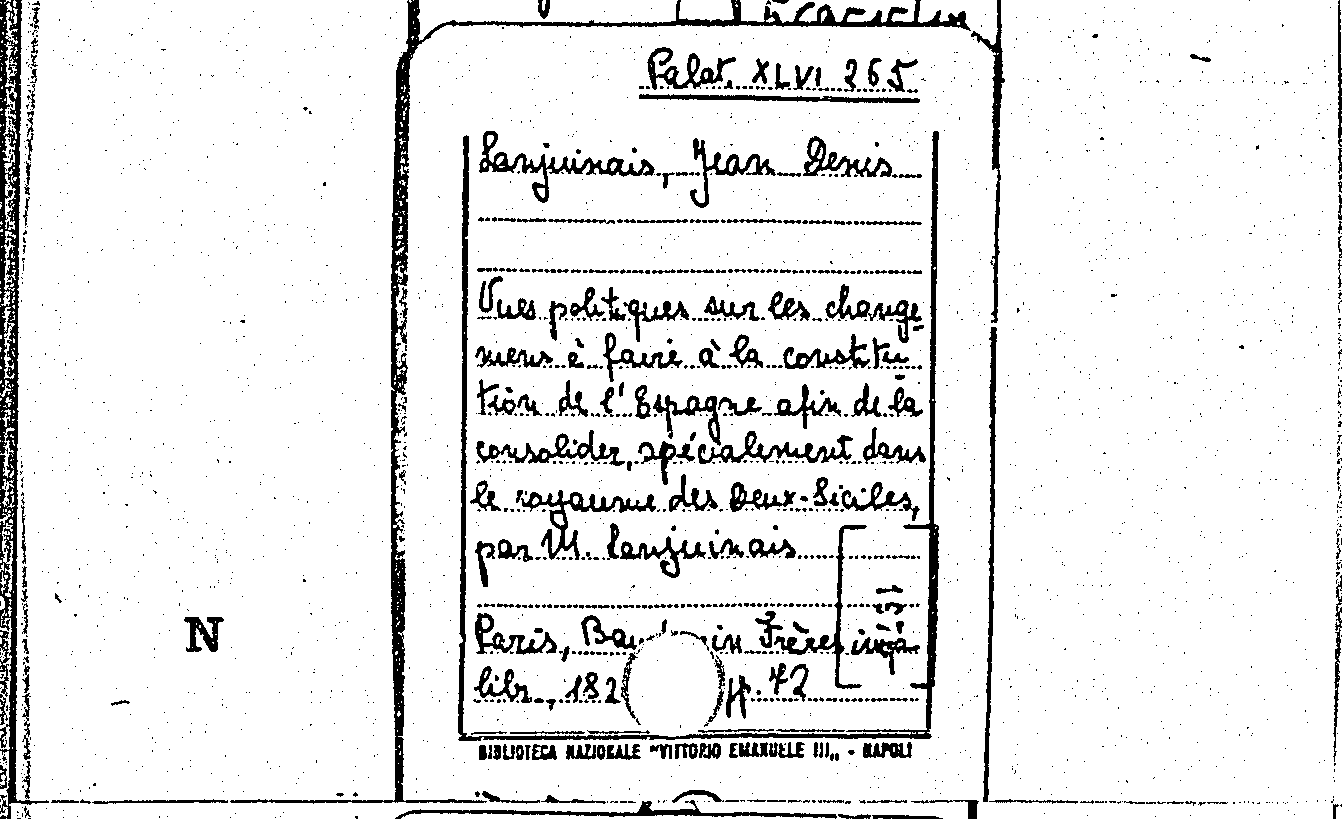 Palat. XLVI 265
Lanjuinais, Jean Denis
Vues politiques sur les change-
mens à faire à la constitu-
tion de l'Espagne afin de la
consolider, spécialement dans
le royaume des Deux-Siciles,
par M. Lanjuinais
Paris, Frères imp.
libr., 182 pp. 42
N
BIBLIOTECA NAZIONALE "VITTORIO EMANUELE III„ - NAPOLI